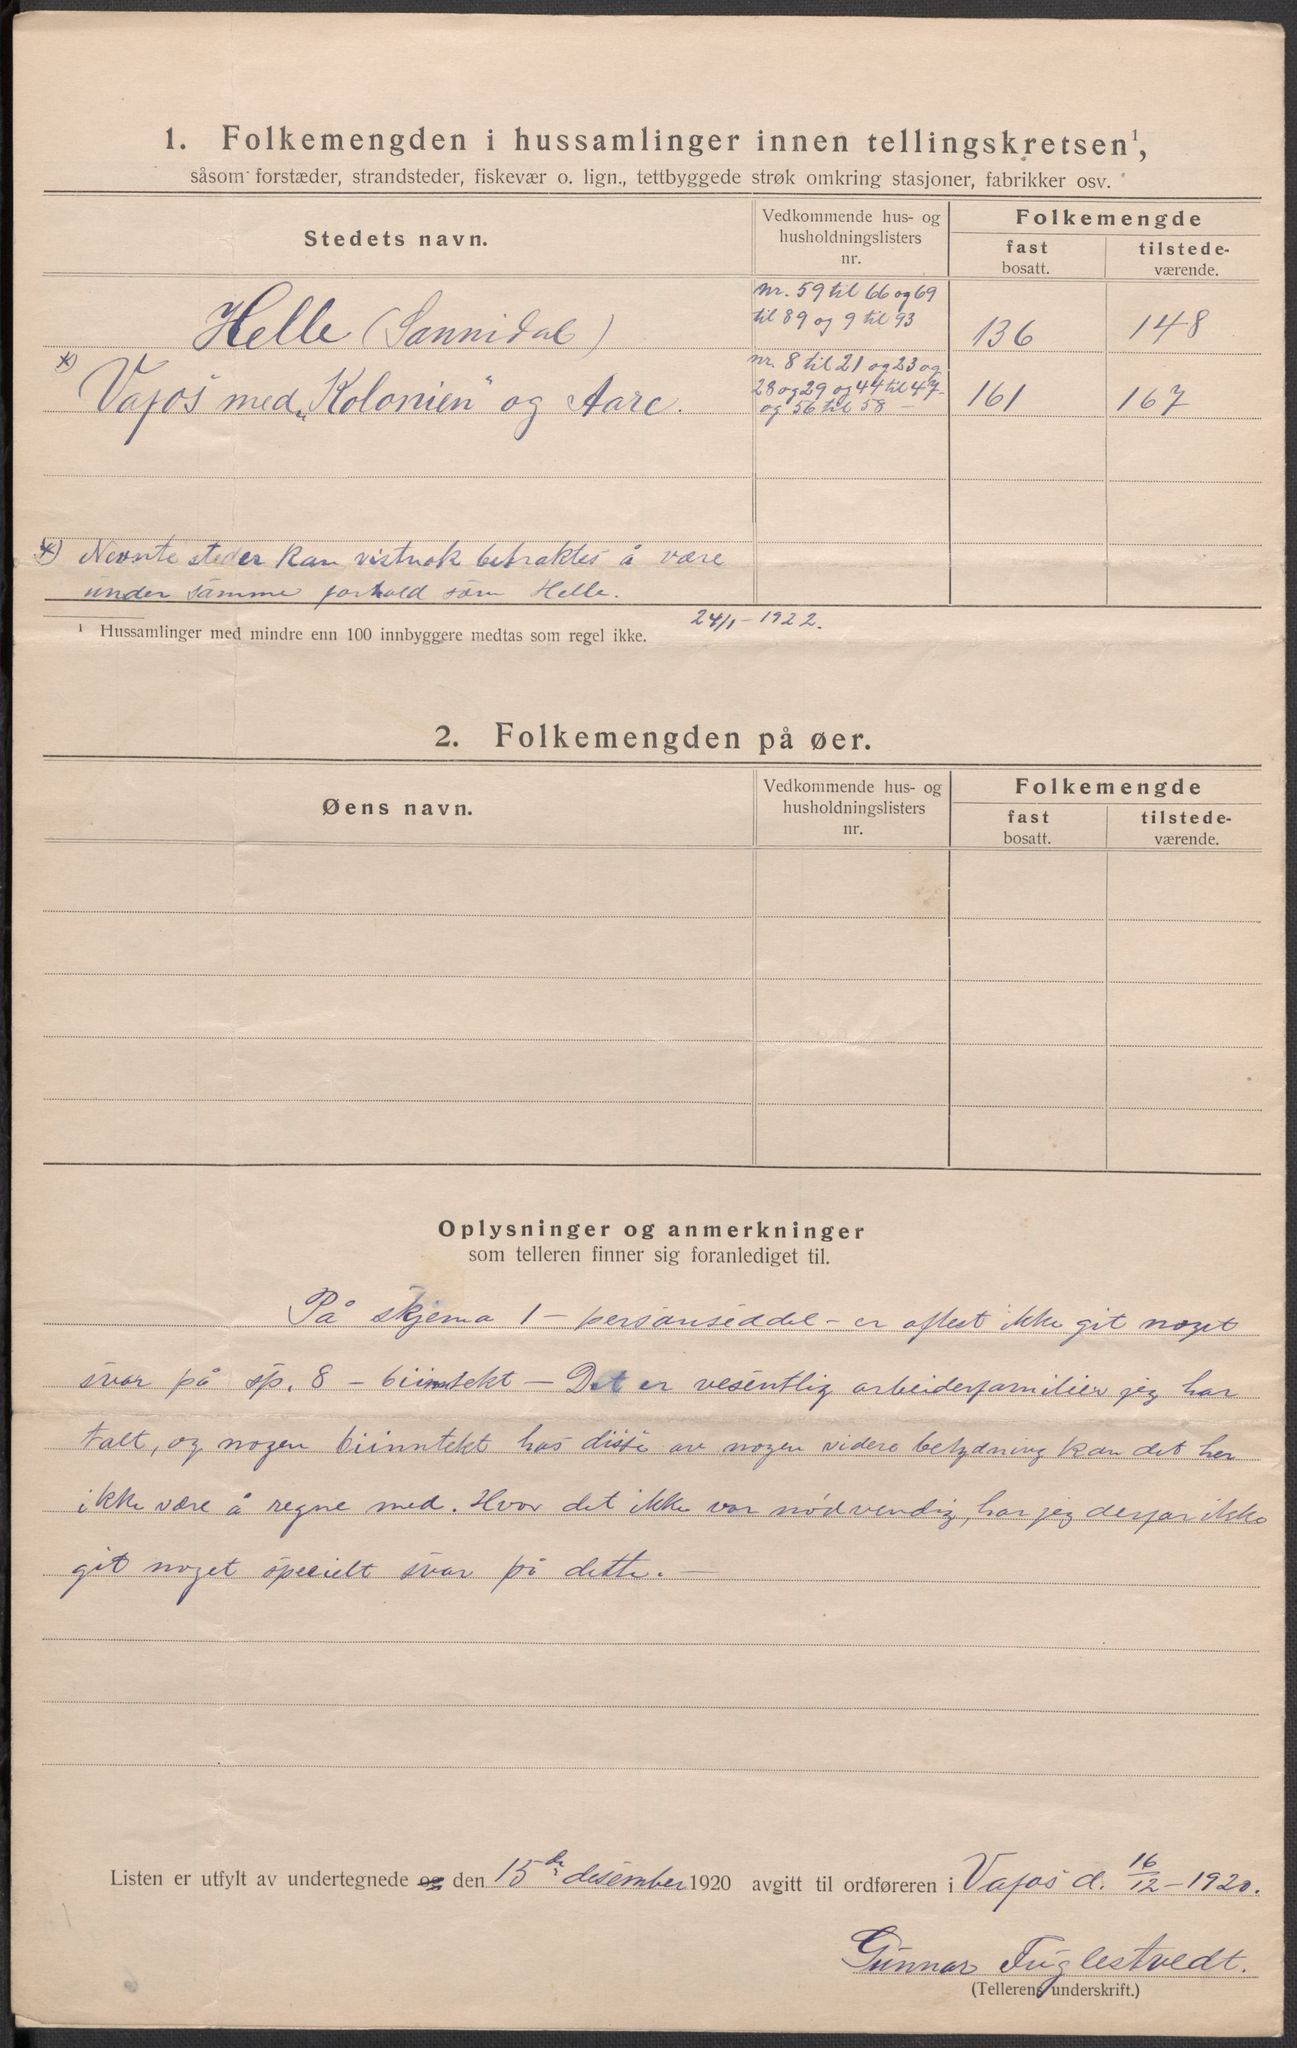 1. Folkemengden i hussamlinger innen tellingskretsen¹,
såsom forstæder, strandsteder, fiskevær o. lign., tettbyggede strøk omkring stasjoner, fabrikker osv.
Stedets navn.
Vedkommende hus- og
husholdningslisters
nr.
Folkemengde
fast
bosatt.
tilstede-
værende.
Helle (Sannidal)
nr. 59 til 66 og 69
til 89 og 9 til 93
136
148
*)
Vafos med „Kolonien“ og Aarø.
nr. 8 til 21 og 23 og
28 og 29 og 44 til 47
og 56 til 58 –
161
167
*) Nevnte steder kan vistnok betraktes å være
under samme forhold som Helle.
24/1 – 1922.
¹ Hussamlinger med mindre enn 100 innbyggere medtas som regel ikke.
2. Folkemengden på øer.
Øens navn.
Vedkommende hus- og
husholdningslisters
nr.
Folkemengde
fast
bosatt.
tilstede-
værende.
Oplysninger og anmerkninger
som telleren finner sig foranlediget til.
På skjema 1 – personseddel – er oftest ikke git noget
svar på sp. 8 – biinntekt – Det er vesentlig arbeiderfamilier jeg har
talt, og nogen biinntekt hos disse av nogen videre betydning kan det her
ikke være å regne med. Hvor det ikke var nødvendig, har jeg derfor ikke
git noget specielt svar på dette. –
Listen er utfylt av undertegnede og den 15de desember 1920 avgitt til ordføreren i Vafos d. 16/12 – 1920.
Gunnar Fuglestvedt.
(Tellerens underskrift.)